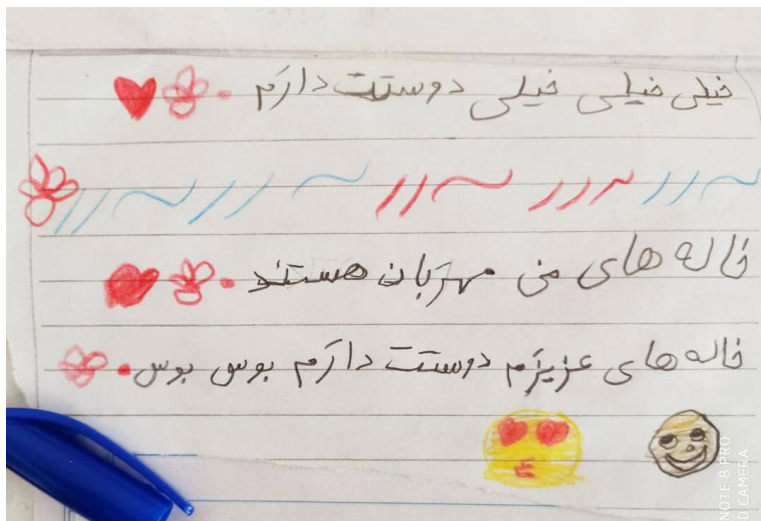 خیلی خیلی خیلی دوستت دارم.
خاله های من مهربان هستند.
خاله های عزیزم دوستت دارم بوس بوس.
NOTE 8 PRO
D CAMERA